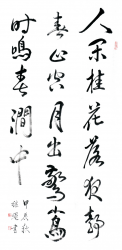 人閑桂花落夜靜
春山空月出驚山鳥
時鳴春澗中
甲辰秋
書